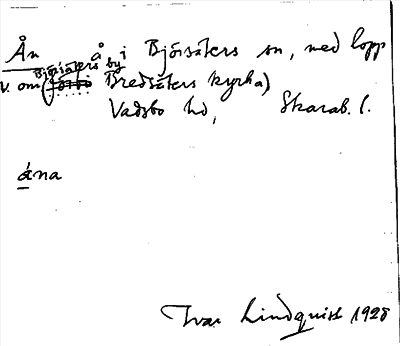 Ån å i Björsäters sn, med lopp
v. om (Björsäters by Bredsäters kyrka)
Vadsbo hd, Skarab. l.
ána
Ivar Lindquist 1928